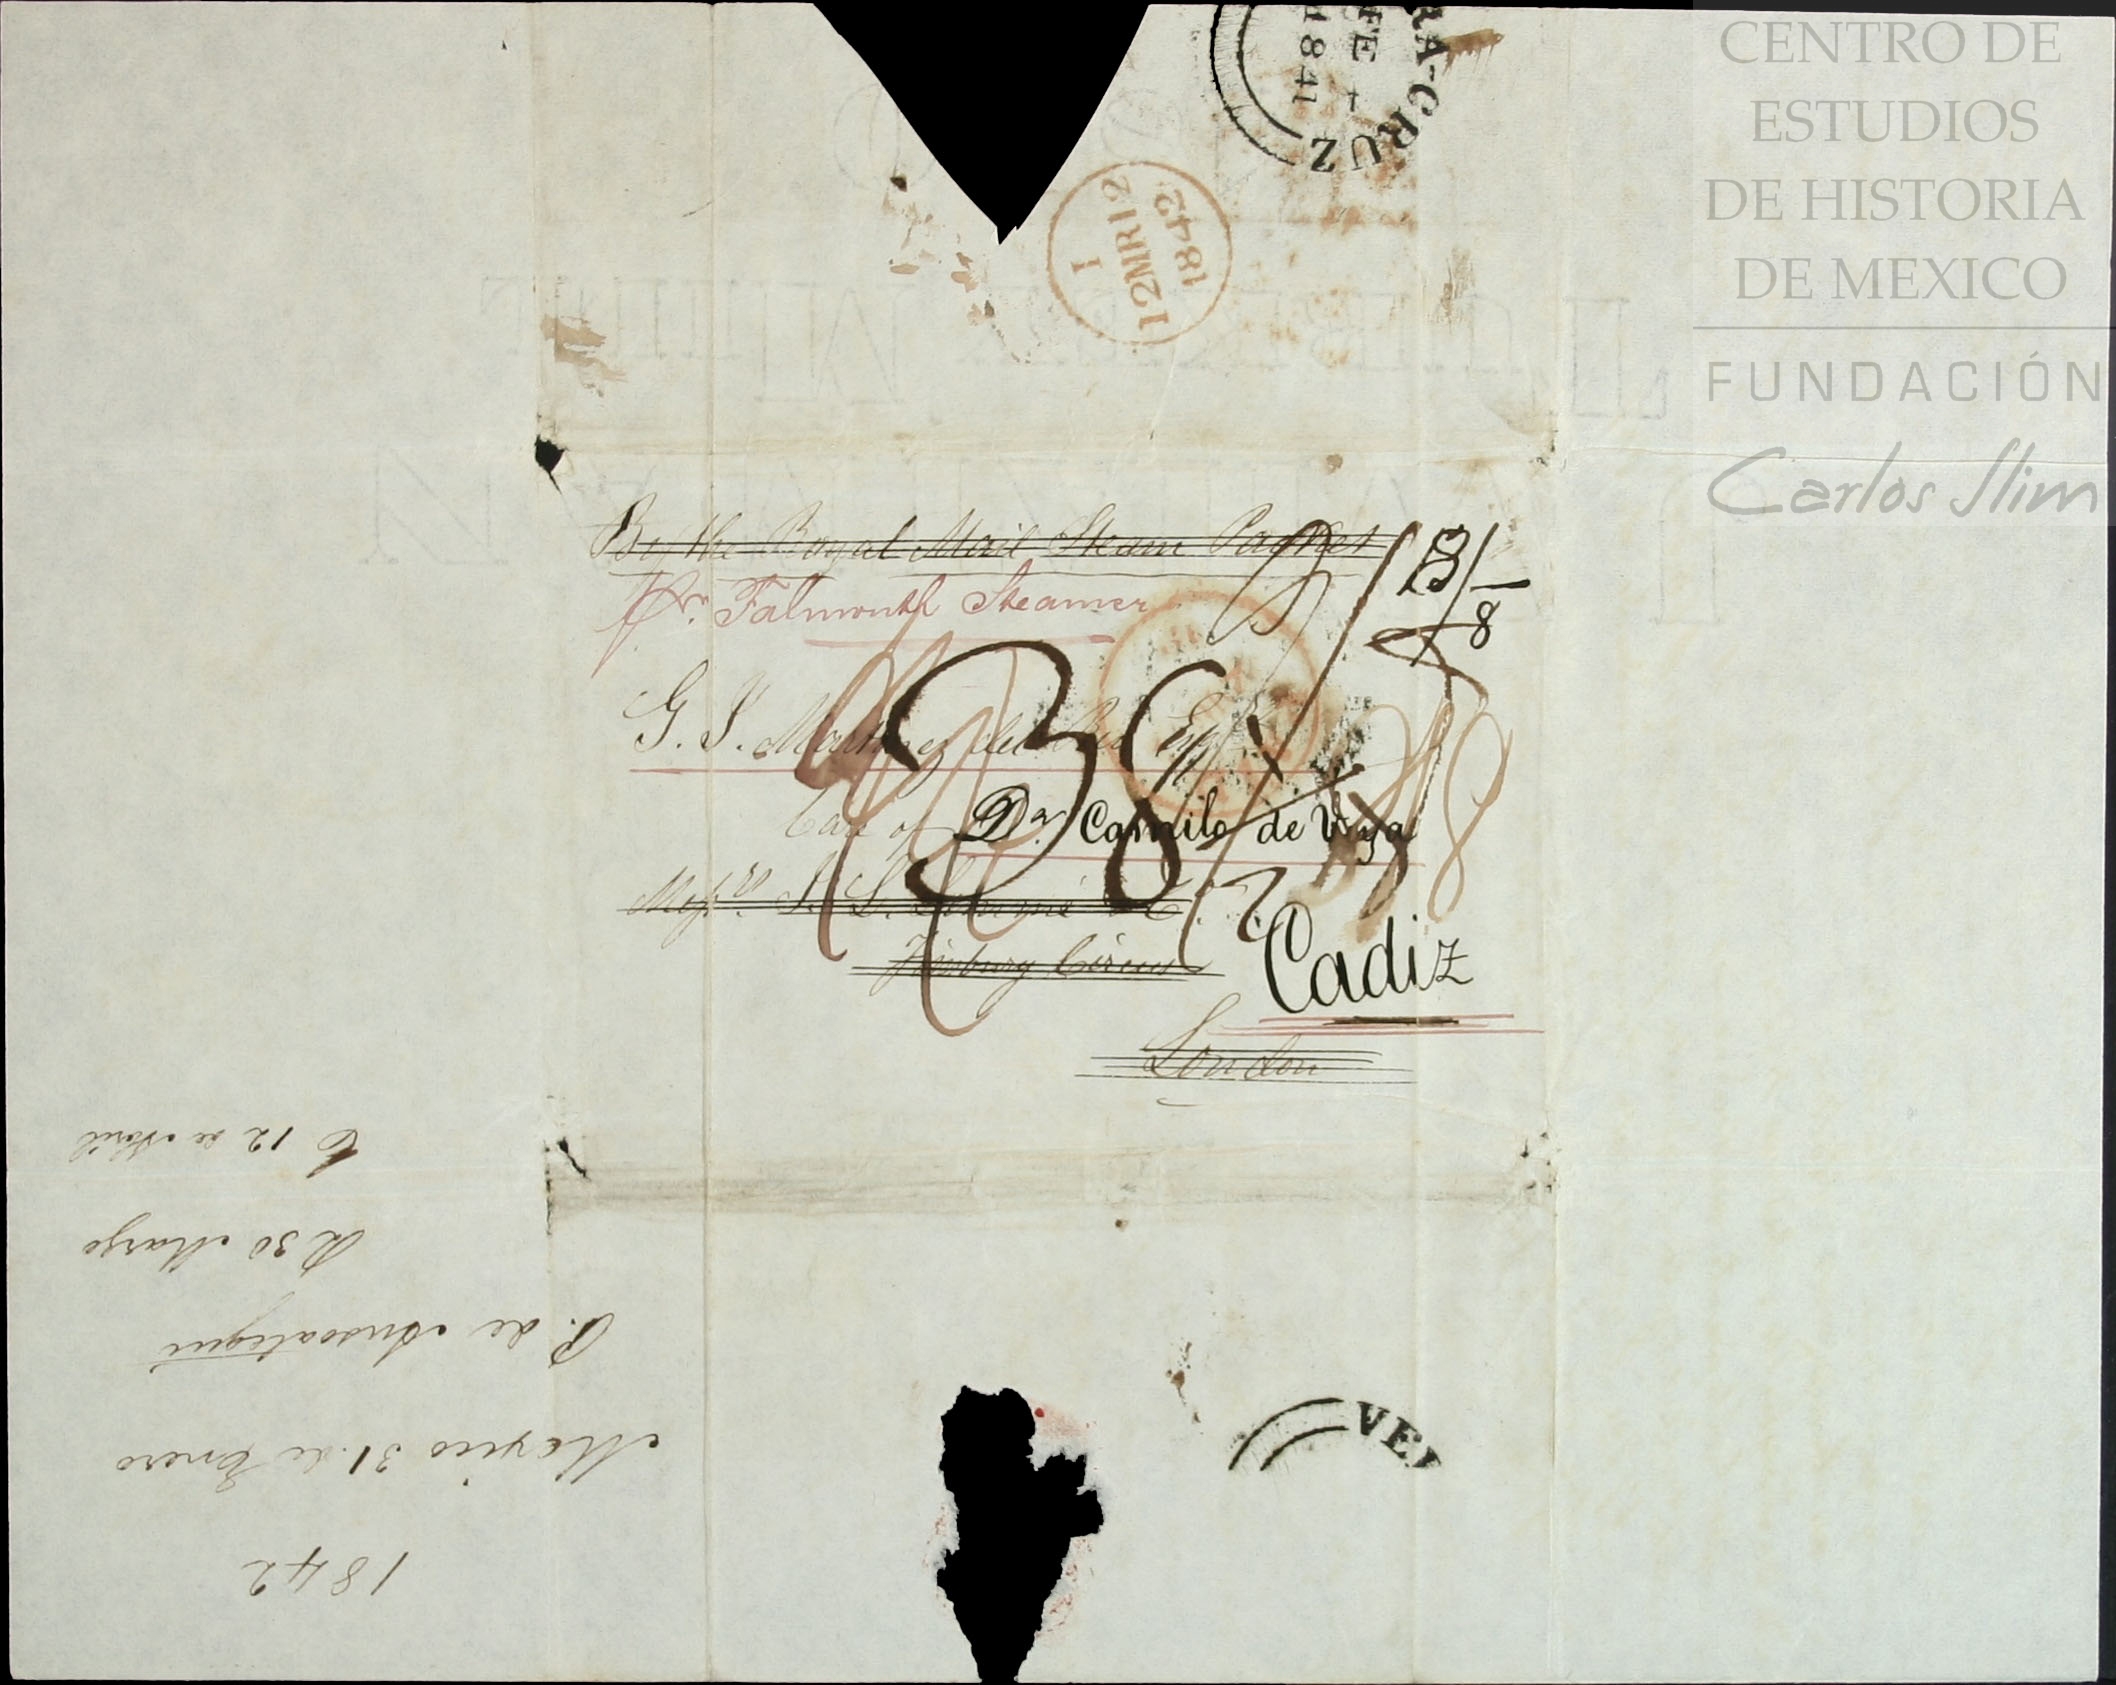 RA-CRUZ
FE
1841
1
12MR12
1842
CENTRO DE
ESTUDIOS
DE HISTORIA
DE MEXICO
FUNDACIÓN
Carlos Slim
By the Royal Mail Steam Packet
Pr. Falmouth Steamer
8
G. J. Martinez del Rio Esqr
Care of
Dn. Camilo de
Messrs.
Finsbury Circus
Cadiz
London
1842
Mexico 31 de Enero
P. de Ansoategui
R 30 Marzo
C 12 de Abril
VER